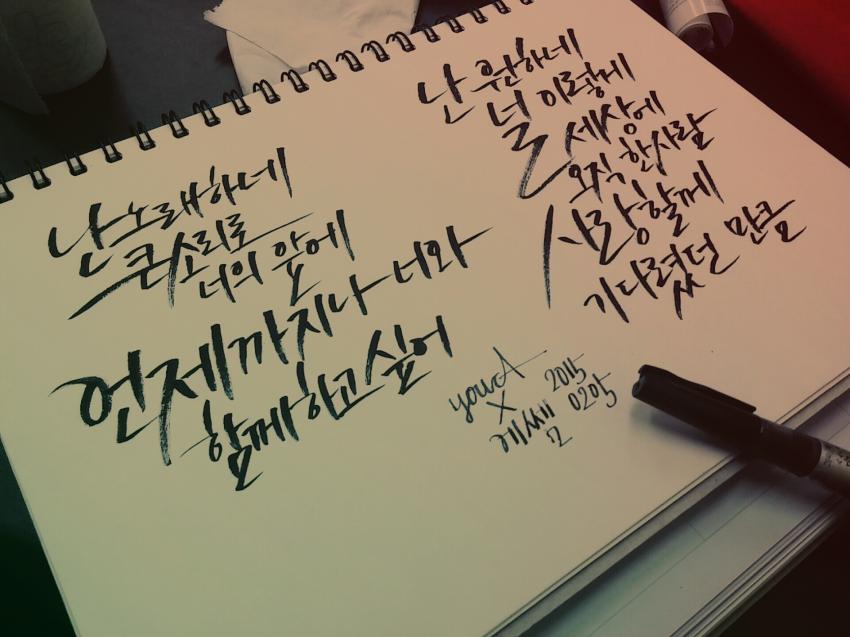 난 노래하네
큰 소리로
너의 앞에
언제까지나 너와
함께하고 싶어
난 원하네
널 이렇게
세상에
오직 한사람
사랑할께
기다렸던 만큼
your A
X
에쎔
2015
0205